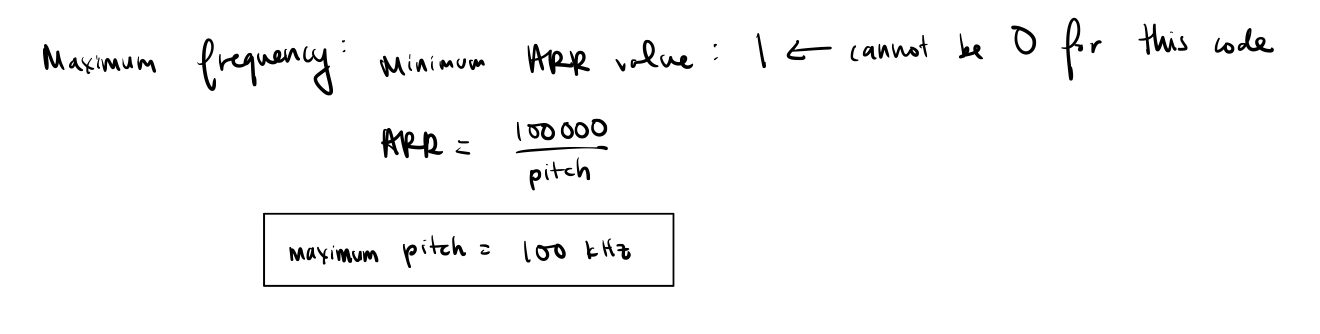 Maximum frequency: Minimum ARR value: 1 ← cannot be 0 for this code
ARR = 100000 / pitch
maximum pitch = 100 kHz